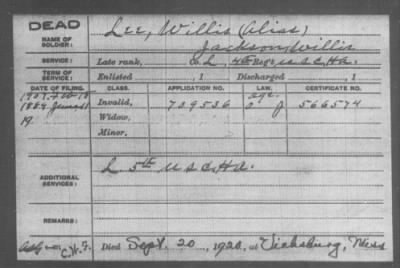 DEAD
NAME OF SOLDIER: Lee, Willis (Alias)
Jackson, Willis
SERVICE: Late rank, Co. L, 4th Reg't U.S.C.H.A.
TERM OF SERVICE: Enlisted , 1 Discharged , 1
DATE OF FILING. CLASS. APPLICATION NO. LAW. CERTIFICATE NO.
1907
1889 June Invalid, 729536 age. 566574
19 Widow,
Minor,
ADDITIONAL SERVICES: L. 5th U.S.C.H.A.
REMARKS:
Died Sept. 20, 1920, at Vicksburg, Miss